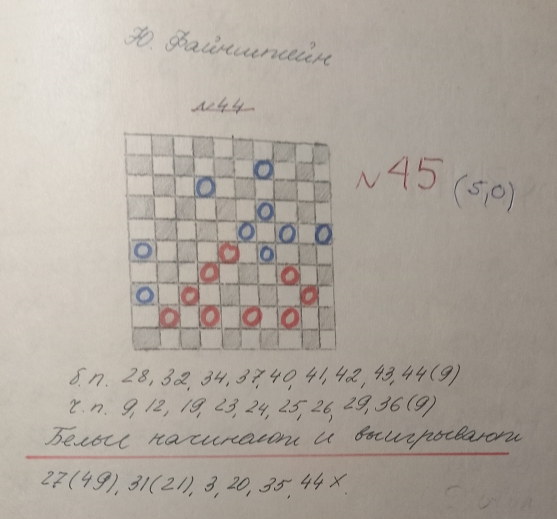 Ю. Файнштейн
№44
№45 (5,0)
б.п. 28, 32, 34, 37, 40, 41, 42, 43, 44 (9)
ч.п. 9, 12, 19, 23, 24, 25, 26, 29, 36 (9)
Белые начинают и выигрывают
27(49), 31(21), 3, 20, 35, 44 X.